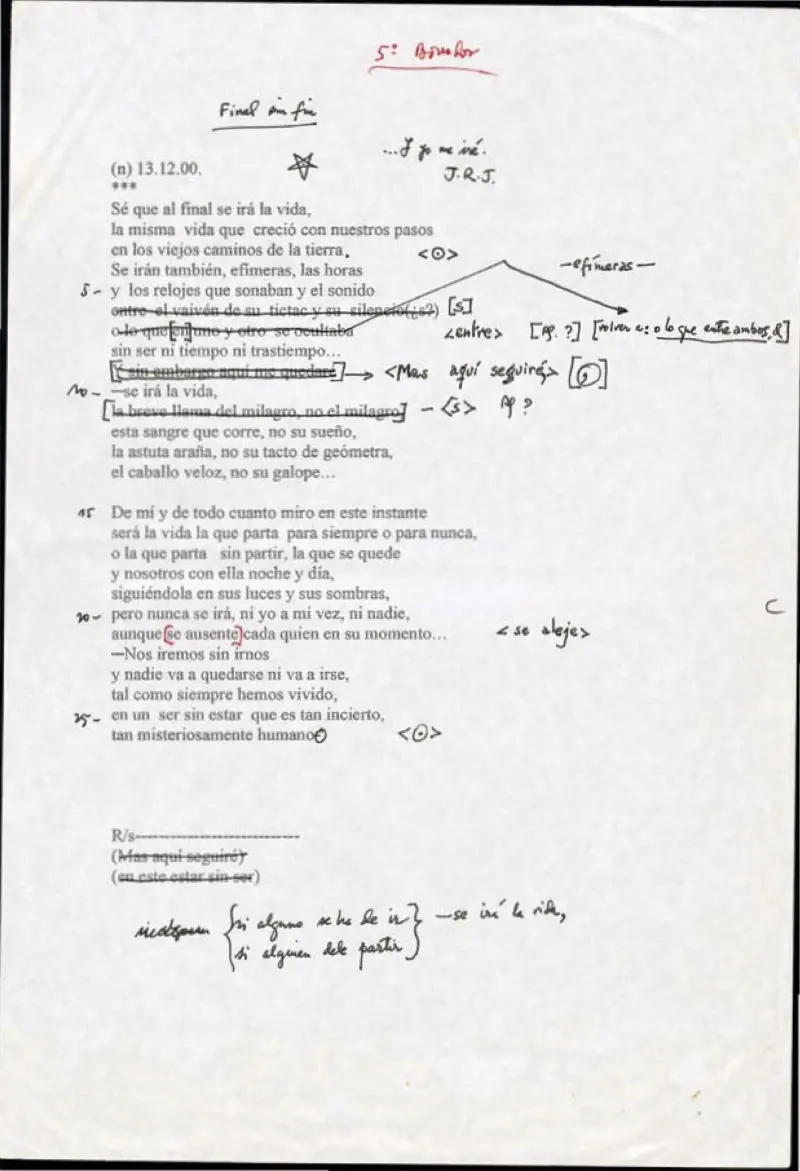 5º Borrador
Final sin fin
...Y yo me iré.
J.R.J.
(n) 13.12.00.
***
Sé que al final se irá la vida,
la misma vida que creció con nuestros pasos
en los viejos caminos de la tierra. <⊙>
Se irán también, efímeras, las horas —efímeras—
5- y los relojes que sonaban y el sonido
entre el vaivén de su tictac y su silencio(¿s?) [s]
o lo que [en] uno y otro se ocultaba <entre> [Ap. ?] [volver a: o lo que entre ambos, &]
sin ser ni tiempo ni trastiempo…
[Y sin embargo aquí me quedaré] <Mas aquí seguiré> [,]
10- —se irá la vida,
[la breve llama del milagro, no el milagro] - <s> Ap ?
esta sangre que corre, no su sueño,
la astuta araña, no su tacto de geómetra,
el caballo veloz, no su galope…
15 De mí y de todo cuanto miro en este instante
será la vida la que parta para siempre o para nunca,
o la que parta sin partir, la que se quede
y nosotros con ella noche y día,
siguiéndola en sus luces y sus sombras,
20- pero nunca se irá, ni yo a mi vez, ni nadie,
aunque [se ausente] cada quien en su momento… <se aleje>
—Nos iremos sin irnos
y nadie va a quedarse ni va a irse,
tal como siempre hemos vivido,
25- en un ser sin estar que es tan incierto,
tan misteriosamente humano <⊙>
R/s----------------------------
(Mas aquí seguiré)
(en este estar sin ser)
{si alguno se ha de ir} —se irá la vida,
{si alguien debe partir}